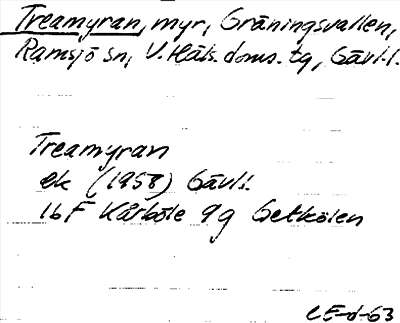 Treamyran, myr, Gräningsvallen,
Ramsjö sn, V. Häls. doms. tg, Gävl. l.
Treamyran
ek (1958) Gävl.
16F Kårböle 9g Getkölen
CE-d-63